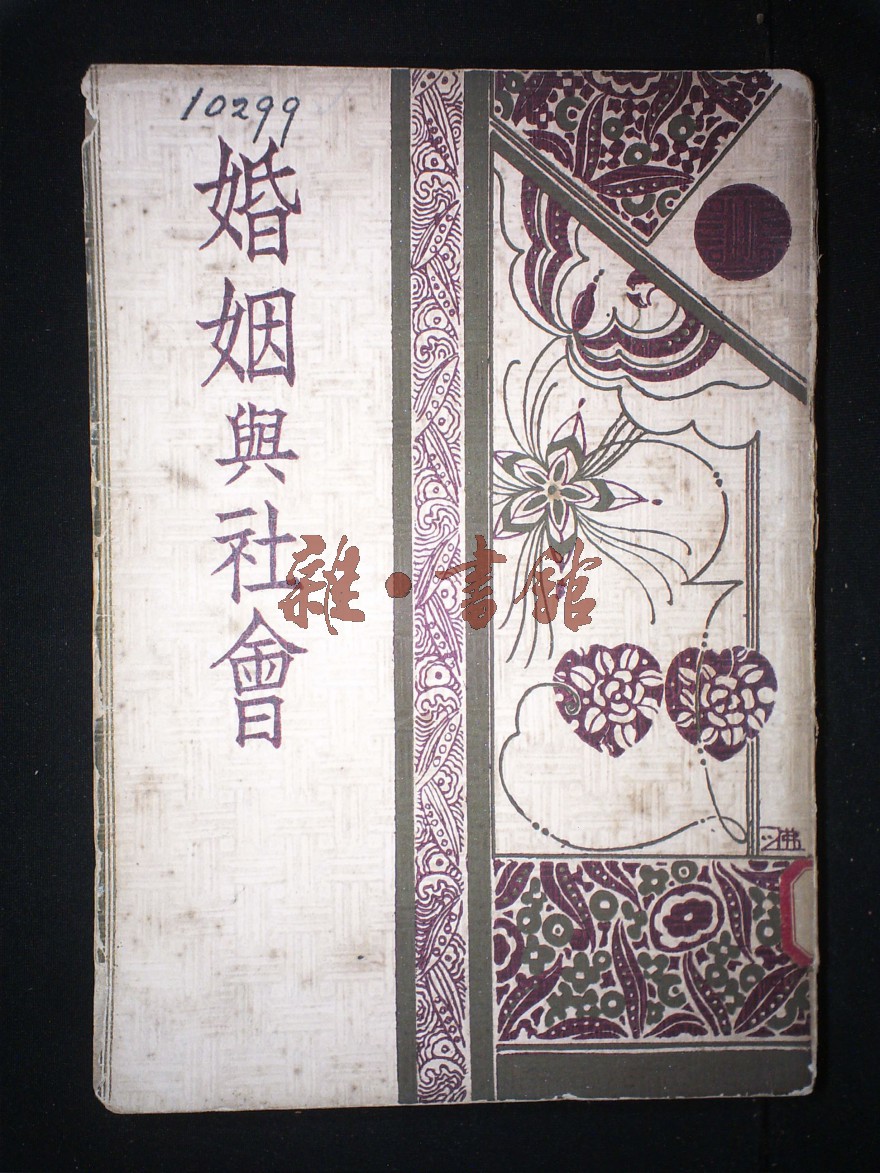 10299
婚姻與社會
雜·書館
佛